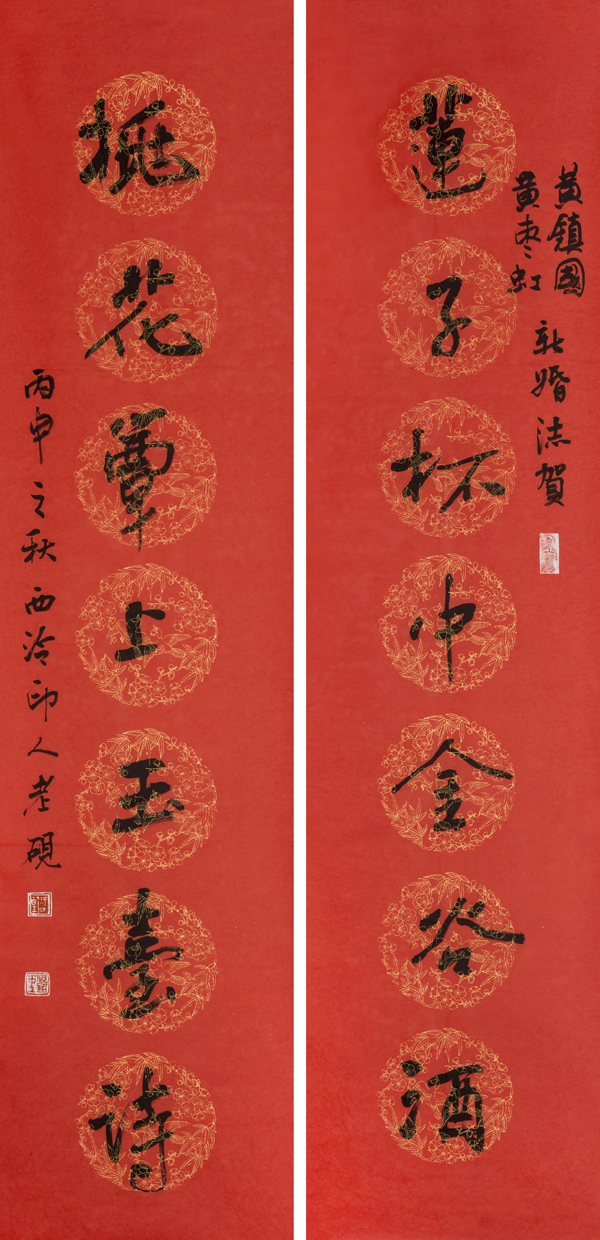 黃鎮國
黃枣虹
新婚誌賀
蓮子杯中金谷酒
桃花簟上玉臺詩
丙申之秋西泠印人老硯